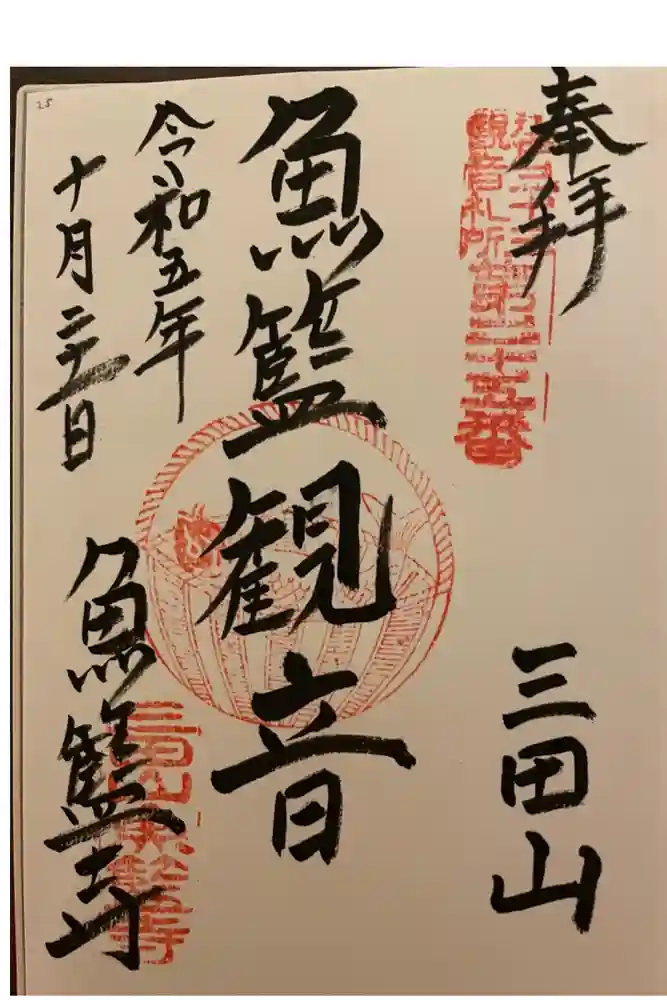 奉拝
三田山
観音札所
第二十五番
魚籃観音
令和五年
十月二十一日
魚籃寺
三田山魚籃寺
25